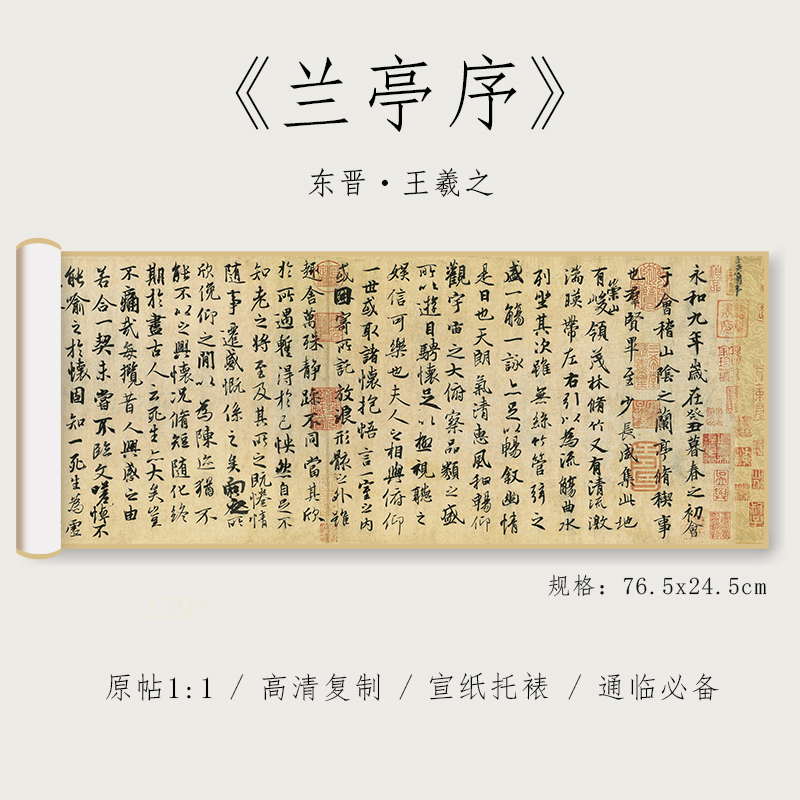 《兰亭序》
东晋·王羲之
永和九年歲在癸丑暮春之初會
于會稽山陰之蘭亭脩稧事
也羣賢畢至少長咸集此地
有崇山峻領茂林脩竹又有清流激
湍暎帶左右引以為流觴曲水
列坐其次雖無絲竹管弦之
盛一觴一詠亦足以暢敘幽情
是日也天朗氣清惠風和暢仰
觀宇宙之大俯察品類之盛
所以遊目騁懷足以極視聽之
娛信可樂也夫人之相與俯仰
一世或取諸懷抱悟言一室之內
或因寄所託放浪形骸之外雖
趣舍萬殊静躁不同當其欣
於所遇蹔得於己怏然自足不
知老之將至及其所之既惓情
隨事遷感慨係之矣向之所
欣俛仰之閒以為陳迹猶不
能不以之興懷況脩短隨化終
期於盡古人云死生亦大矣豈
不痛哉每攬昔人興感之由
若合一契未嘗不臨文嗟悼不
能喻之於懷固知一死生為虛
规格：76.5x24.5cm
原帖1:1 / 高清复制 / 宣纸托裱 / 通临必备